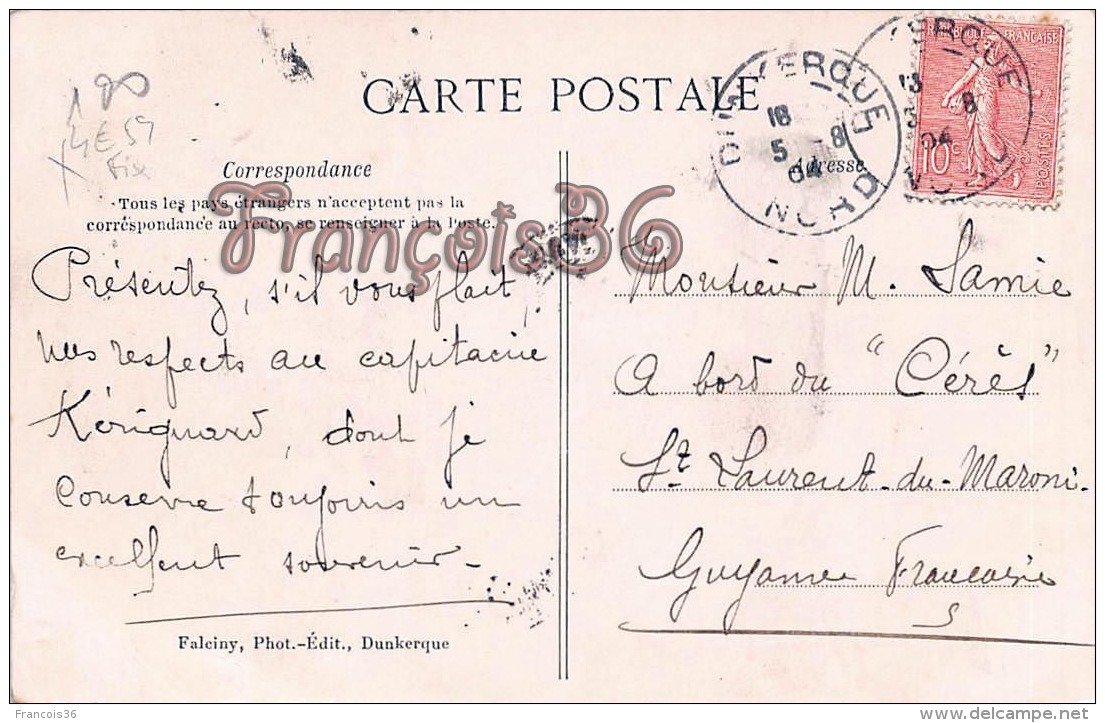 CARTE POSTALE
Correspondance
Tous les pays étrangers n'acceptent pas la
correspondance au recto, se renseigner à la Poste.
Présentez, s'il vous plait
nos respects au capitaine
Kérignard, dont je
conserve toujours un
excellent souvenir -
Falciny, Phot.-Édit., Dunkerque
RÉPUBLIQUE FRANÇAISE
10c
POSTES
DUNKERQUE
18
5 - 8
04
NORD
Adresse
Monsieur M. Lamie
A bord du "Cérès"
St Laurent-du-Maroni-
Guyanne Francaise
François36
Francois36
delcampe.net